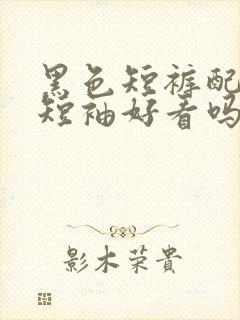 黑色短裤配
短袖好看吗
影木荣貴